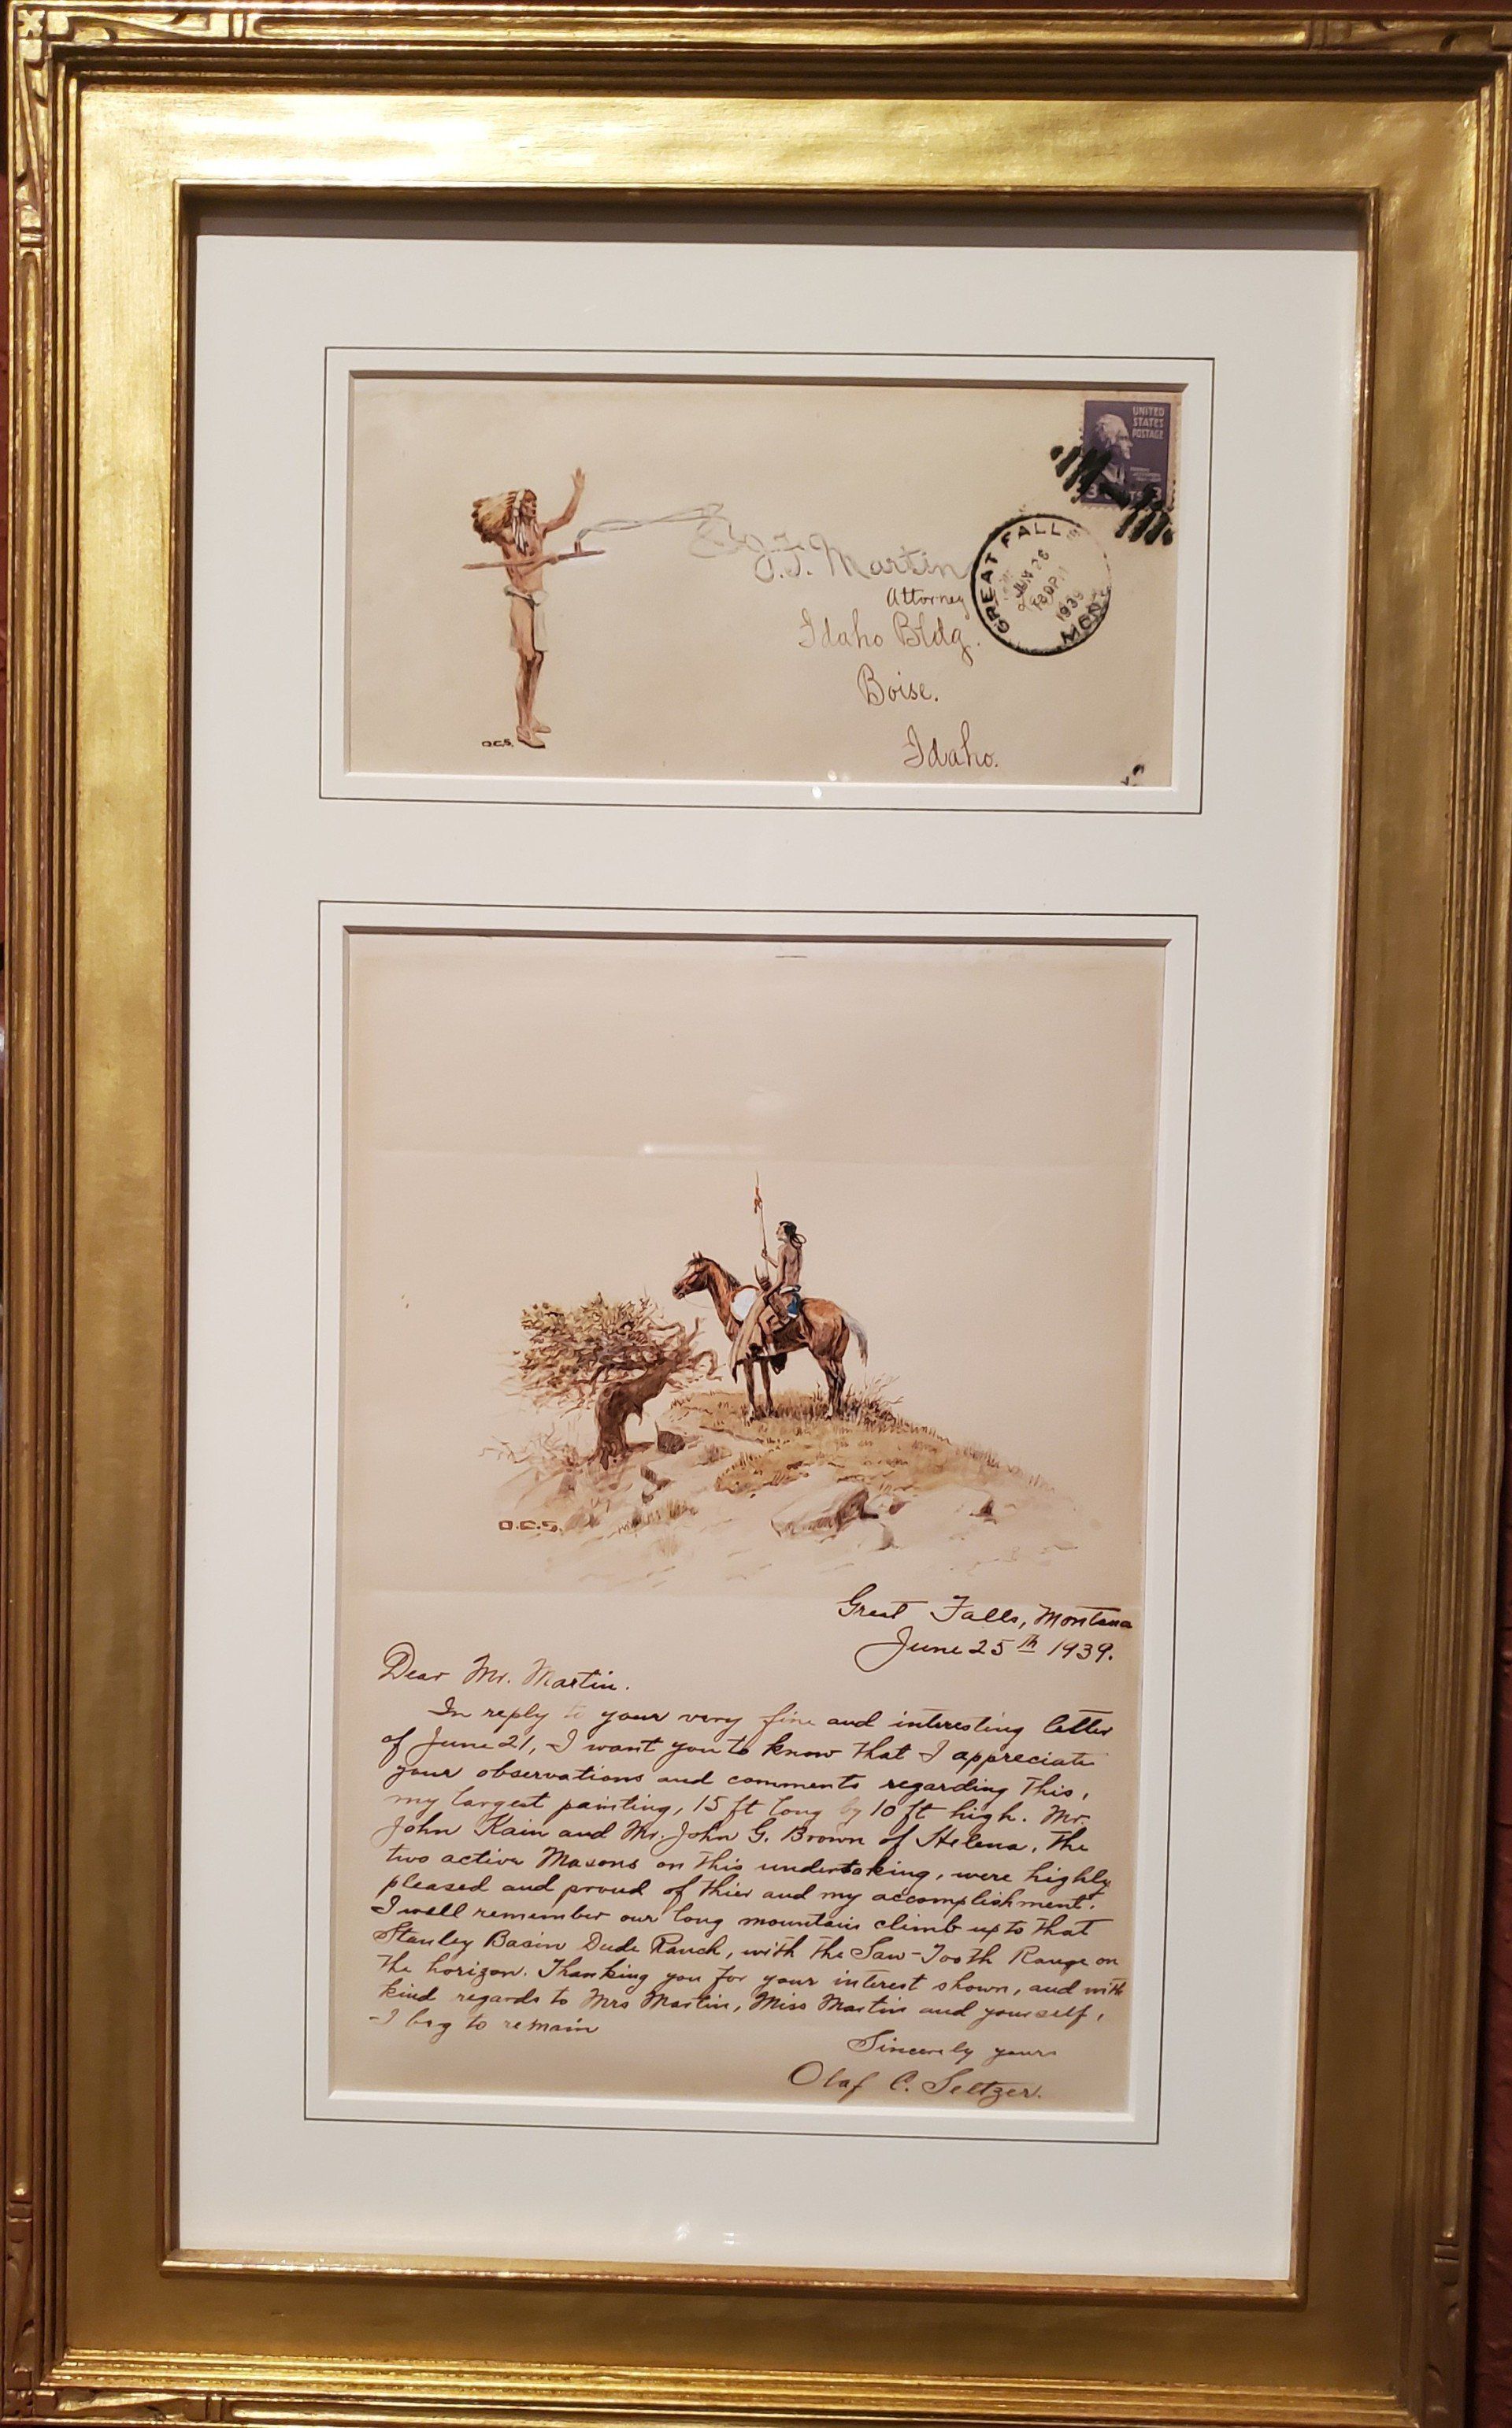 UNITED
STATES
POSTAGE
3 3
GREAT FALLS
JUN 26
1939
MONT.
J.T. Martin
Attorney
Idaho Bldg.
Boise.
Idaho.
O.C.S.
O.C.S.
Great Falls, Montana
June 25th 1939.
Dear Mr. Martin.
In reply to your very fine and interesting letter
of June 21, I want you to know that I appreciate
your observations and comments regarding this,
my largest painting, 15 ft long by 10 ft high. Mr.
John Kain and Mr. John G. Brown of Helena, the
two active Masons on this undertaking, were highly
pleased and proud of thier and my accomplishment.
I well remember our long mountain climb up to that
Stanley Basin Dude Ranch, with the Saw-Tooth Range on
the horizon. Thanking you for your interest shown, and with
kind regards to Mrs Martin, Miss Martin and yourself,
I beg to remain
Sincerely yours
Olaf C. Seltzer.